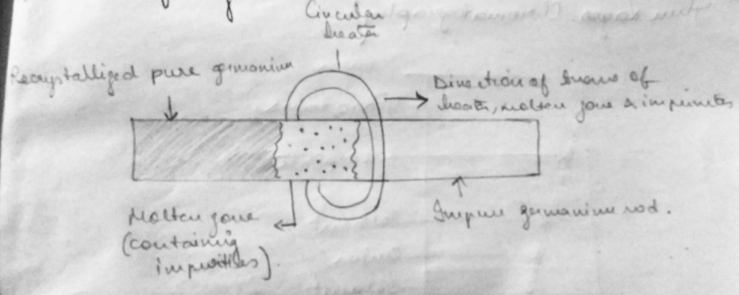 Circular
heater
Recrystallized pure germanium
Direction of move of
heater, molten zone & impurities
Molten zone
(containing
impurities).
Impure germanium rod.